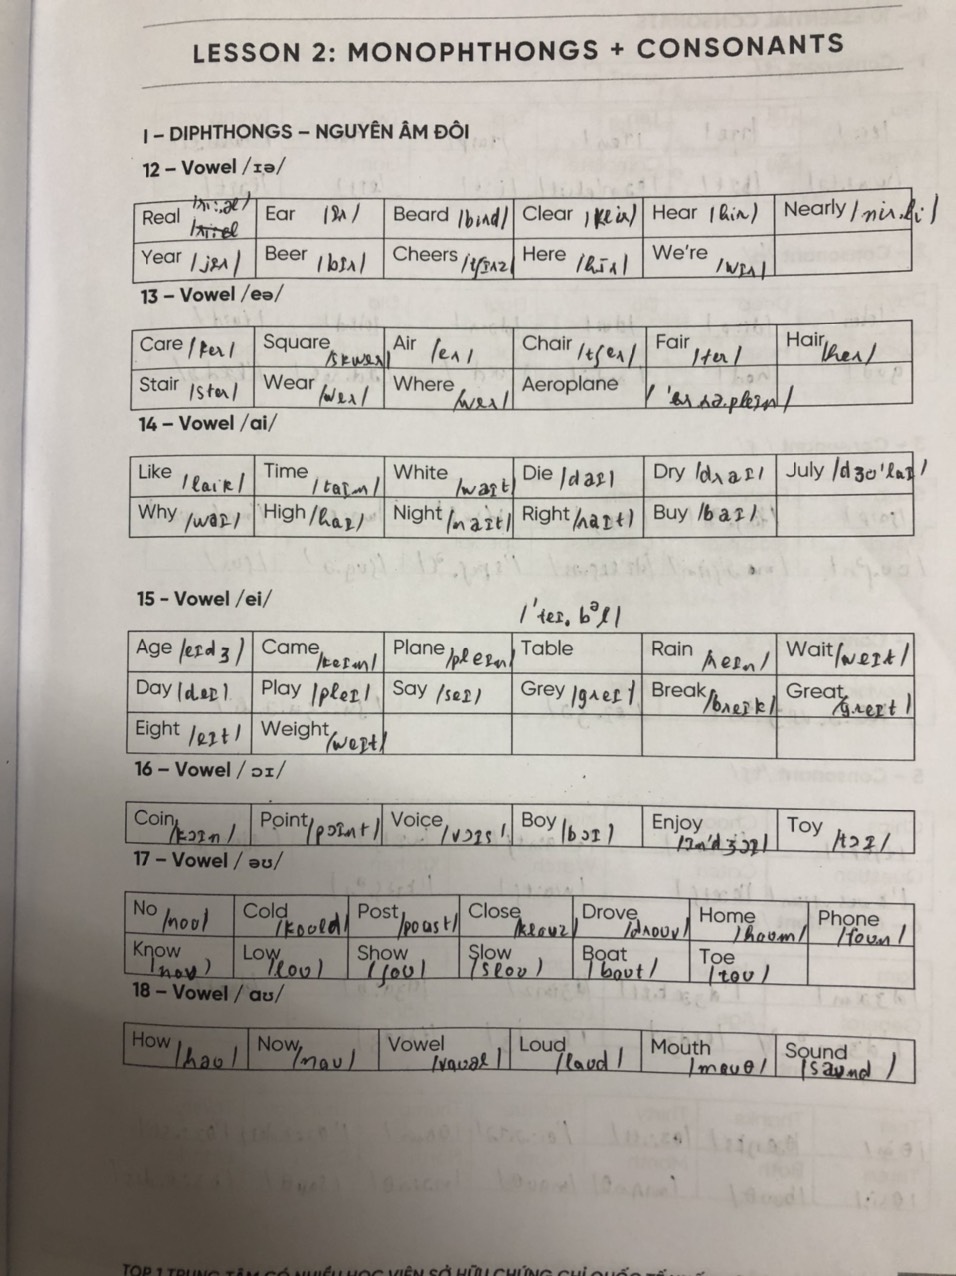 LESSON 2: MONOPHTHONGS + CONSONANTS
I – DIPHTHONGS – NGUYÊN ÂM ĐÔI
12 – Vowel /ɪə/
Real Ear /ɪr/ Beard /bɪrd/ Clear Hear /hir/ Nearly /nir.li/
Year /jɪr/ Beer /bɪr/ Cheers /tʃɪrz Here /hɪr/ We're /wɪr/
13 – Vowel /eə/
Care /ker/ Square /skwer/ Air /er/ Chair /tʃer/ Fair /fer/ Hair /her/
Stair /ster/ Wear /wer/ Where /wer/ Aeroplane /ˈer.ə.pleɪn/
14 – Vowel /ai/
Like /laik/ Time /taɪm/ White /waɪt/ Die /daɪ/ Dry /draɪ/ July /dʒʊˈlaɪ/
Why /waɪ/ High /haɪ/ Night /naɪt/ Right /raɪt/ Buy /baɪ/
15 - Vowel /ei/
/ˈteɪ.bᵊl/
Age /eɪdʒ/ Came /keɪm/ Plane /pleɪn/ Table Rain /reɪn/ Wait /weɪt/
Day /deɪ/ Play /pleɪ/ Say /seɪ/ Grey /greɪ/ Break /breɪk/ Great /greɪt/
Eight /eɪt/ Weight /weɪt/
16 – Vowel / ɔɪ/
Coin /kɔɪn/ Point /pɔɪnt/ Voice /vɔɪs/ Boy /bɔɪ/ Enjoy /ɪnˈdʒɔɪ/ Toy /tɔɪ/
17 – Vowel / əʊ/
No /noʊ/ Cold /koʊld/ Post /poʊst/ Close /kloʊz/ Drove /droʊv/ Home /hoʊm/ Phone /foʊn/
Know /noʊ/ Low /loʊ/ Show /ʃoʊ/ Slow /sloʊ/ Boat /boʊt/ Toe /toʊ/
18 – Vowel / aʊ/
How /haʊ/ Now /naʊ/ Vowel /vaʊəl/ Loud /laʊd/ Mouth /maʊθ/ Sound /saʊnd/